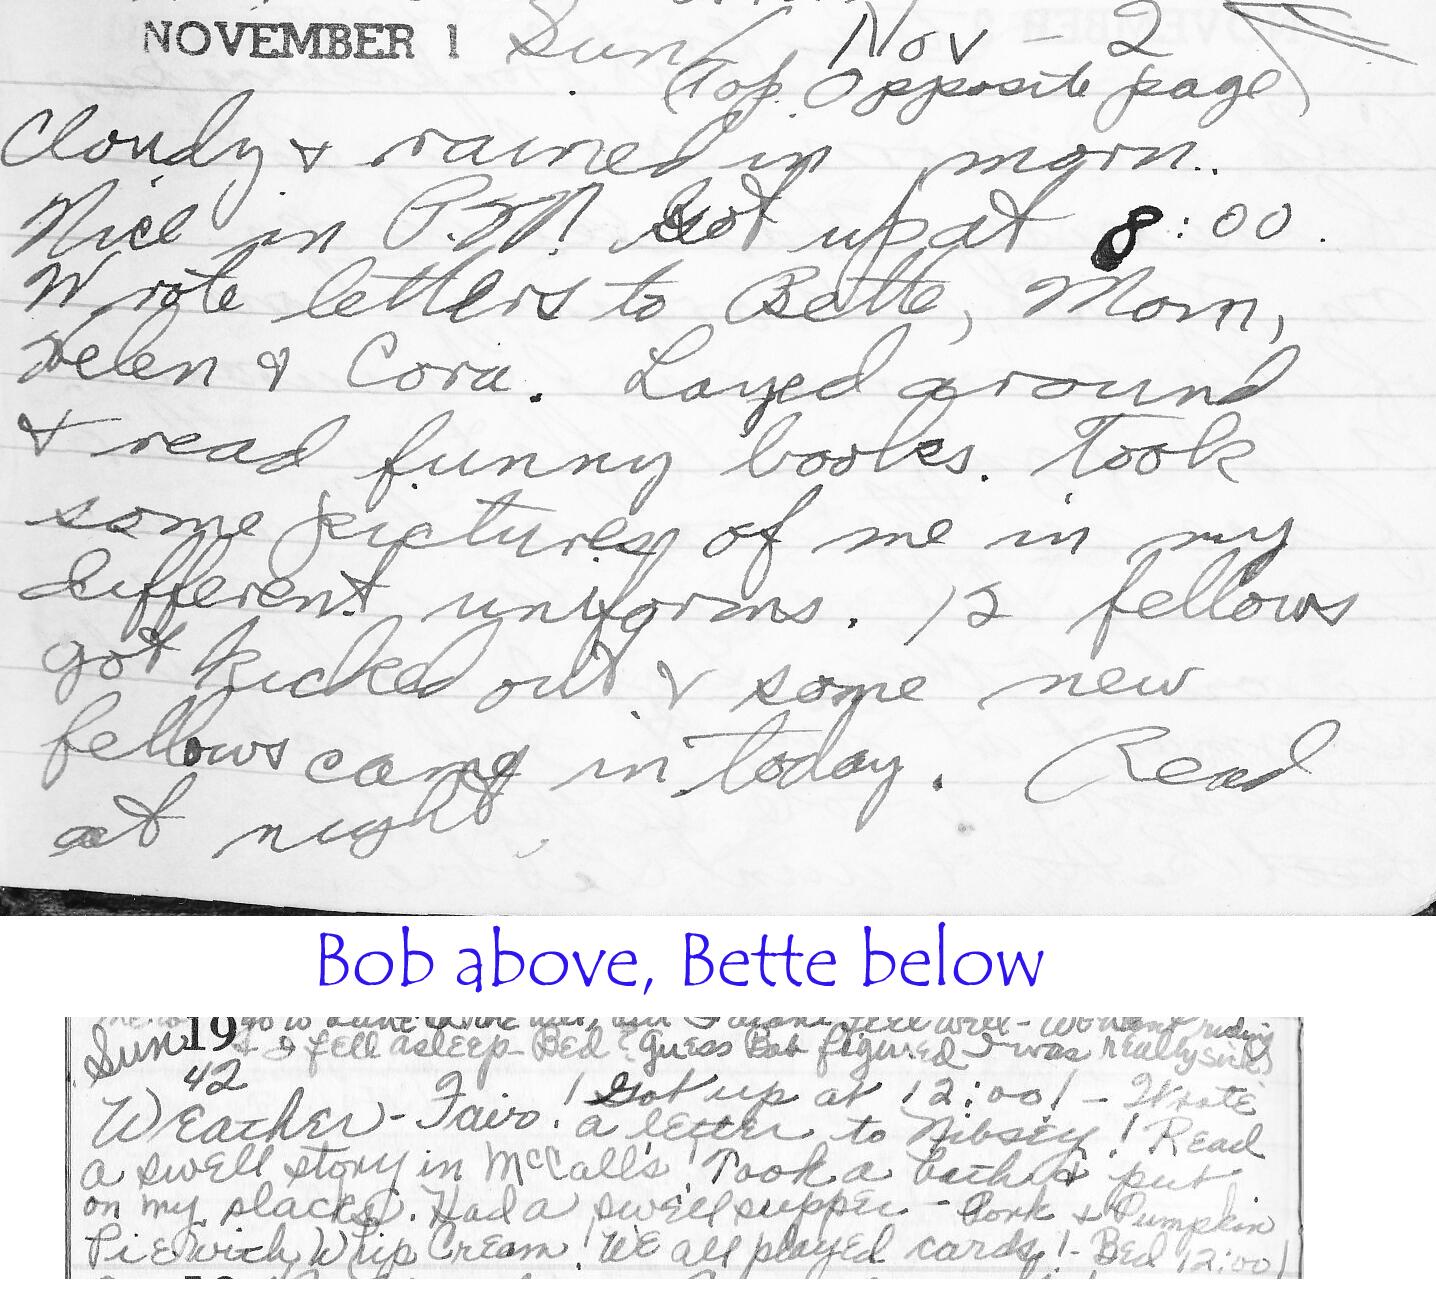 NOVEMBER 1 Sun Nov - 2
(Top Opposite page)
Cloudy & rained in morn..
Nice in P.M! Got up at 8:00.
Wrote letters to Bette, Mom,
Helen & Cora. Layed around
& read funny books. Took
some pictures of me in my
different uniforms. 12 fellows
got kicked out & some new
fellows came in today. Read
at night.
Bob above, Bette below
19 go to
Sun & I fell asleep - Bed? Guess Bob figured I was really sick
42
Weather - Fair! Got up at 12:00! - Wrote
a letter to Nibsey! Read
a swell story in McCall's! Took a bath & put
on my slacks. Had a swell supper - Pork & Pumpkin
Pie with Whip Cream! We all played cards! - Bed 12:00!